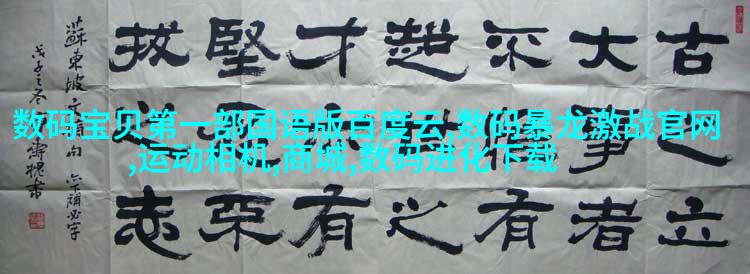 古之立
大事者
不惟有
超世之
才亦有
堅忍不
拔之志
蘇東坡
戊子之冬
数码宝贝第一部国语版百度云,数码暴龙激战官网
,运动相机,商城,数码进化下载